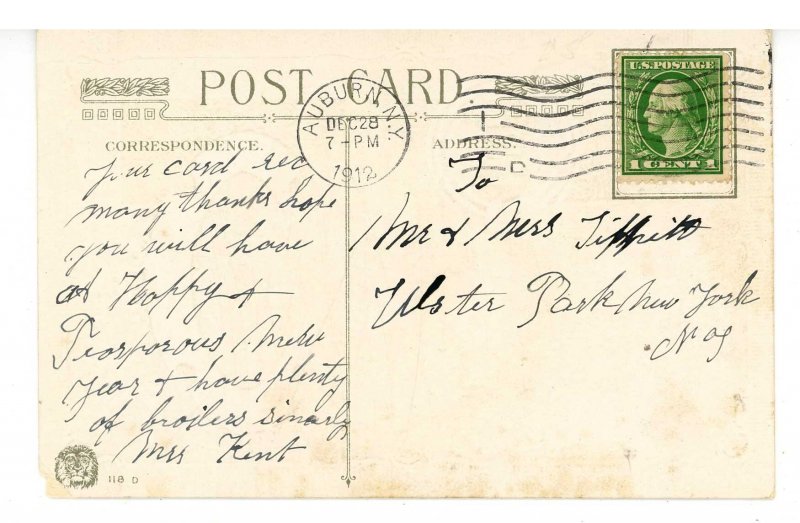 POST CARD
CORRESPONDENCE.
ADDRESS.
AUBURN, N.Y.
DEC 28
7-PM
1912
D
U.S. POSTAGE
1 CENT 1
your card rec
many thanks hope
you will have
a Happy &
Prosporous New
year & have plenty
of broilers
Mrs Kent
To
Mr & Mrs Tippitt
Ulster Park New York
118 D